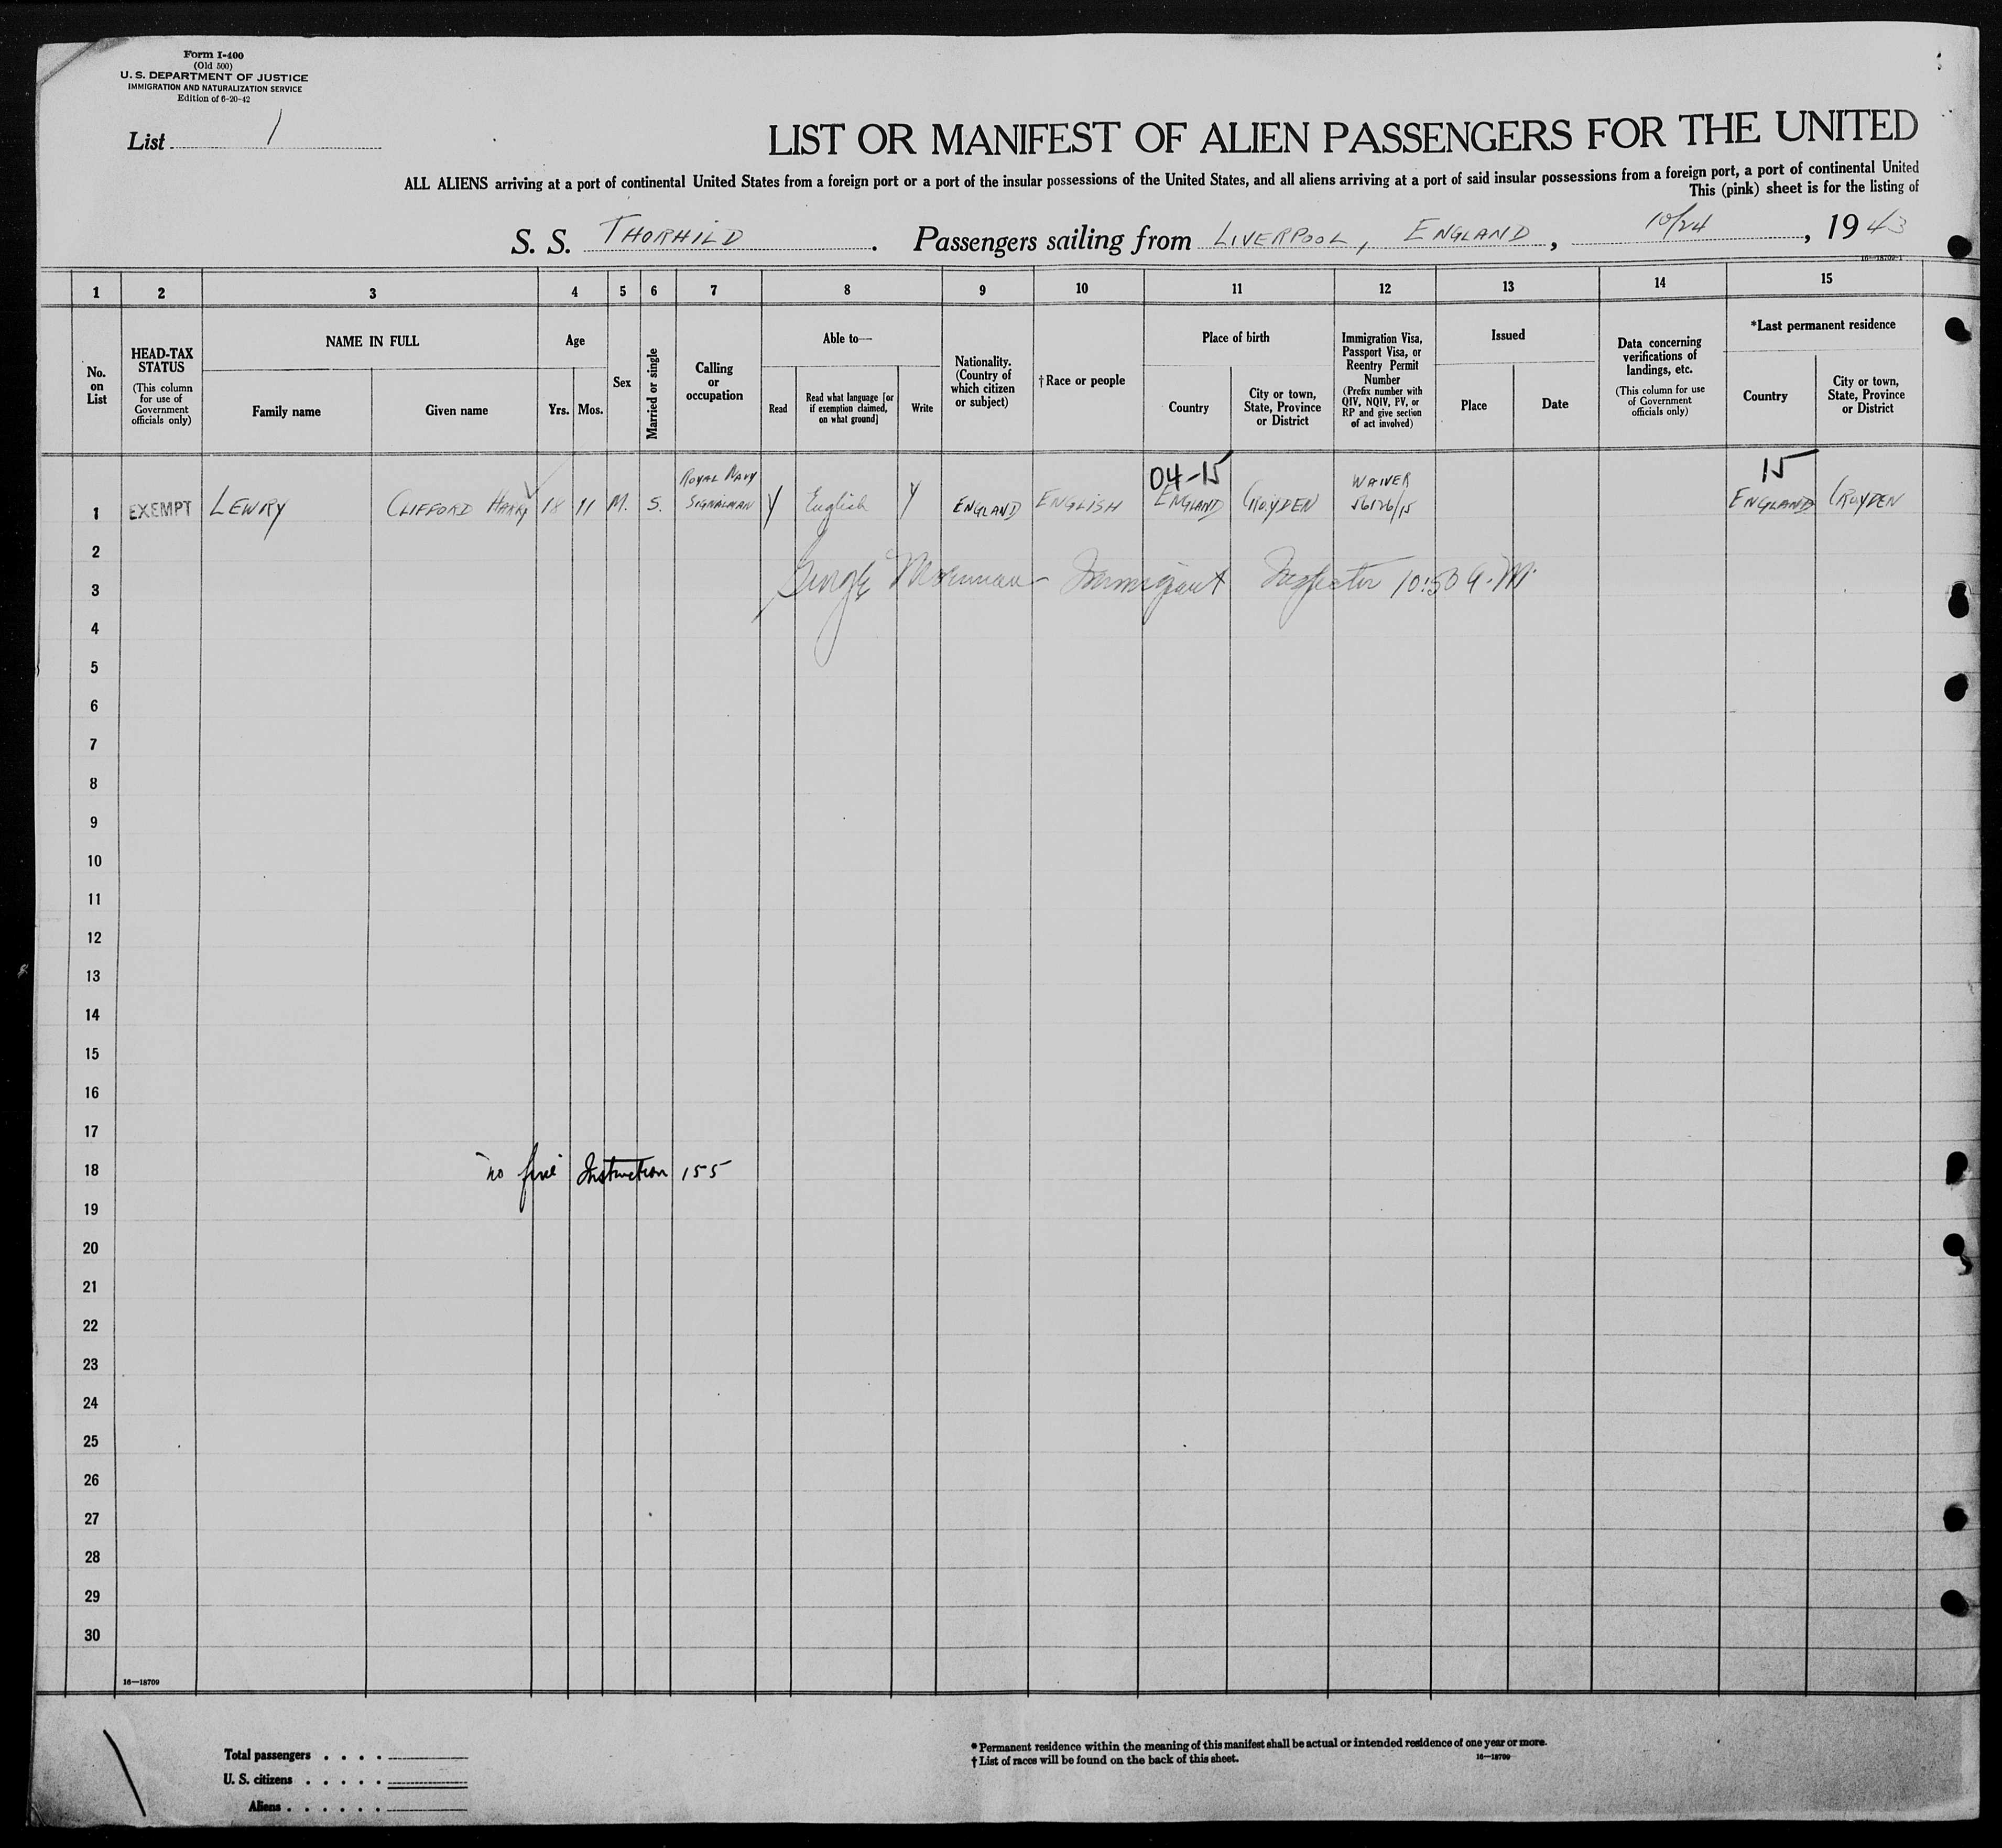 Form I-400
(Old 500)
U. S. DEPARTMENT OF JUSTICE
IMMIGRATION AND NATURALIZATION SERVICE
Edition of 6-20-42
List 1
LIST OR MANIFEST OF ALIEN PASSENGERS FOR THE UNITED
ALL ALIENS arriving at a port of continental United States from a foreign port or a port of the insular possessions of the United States, and all aliens arriving at a port of said insular possessions from a foreign port, a port of continental United
This (pink) sheet is for the listing of
S. S. THORHILD. Passengers sailing from LIVERPOOL, ENGLAND, 10/24, 1943
16—18709-1
1 2 3 4 5 6 7 8 9 10 11 12 13 14 15
No. on List
HEAD-TAX STATUS
(This column for use of Government officials only)
NAME IN FULL
Family name
Given name
Age
Yrs. Mos.
Sex
Married or single
Calling or occupation
Able to—
Read
Read what language [or if exemption claimed, on what ground]
Write
Nationality. (Country of which citizen or subject)
†Race or people
Place of birth
Country
City or town, State, Province or District
Immigration Visa, Passport Visa, or Reentry Permit Number
(Prefix number with QIV, NQIV, PV, or RP and give section of act involved)
Issued
Place
Date
Data concerning verifications of landings, etc.
(This column for use of Government officials only)
*Last permanent residence
Country
City or town, State, Province or District
ROYAL NAVY 04-15 WAIVER 15
1 EXEMPT LEWRY CLIFFORD HARRY 18 11 M. S. SIGNALMAN Y English Y ENGLAND ENGLISH ENGLAND CROYDEN 56126/15 ENGLAND CROYDEN
2
George Immigrant Inspector 10:50 A.M.
3
4
5
6
7
8
9
10
11
12
13
14
15
16
17
18 "no fine" Instruction 155
19
20
21
22
23
24
25
26
27
28
29
30
16—18709
Total passengers . . . .
U. S. citizens . . . . .
Aliens . . . . . .
*Permanent residence within the meaning of this manifest shall be actual or intended residence of one year or more.
†List of races will be found on the back of this sheet.
16—18709